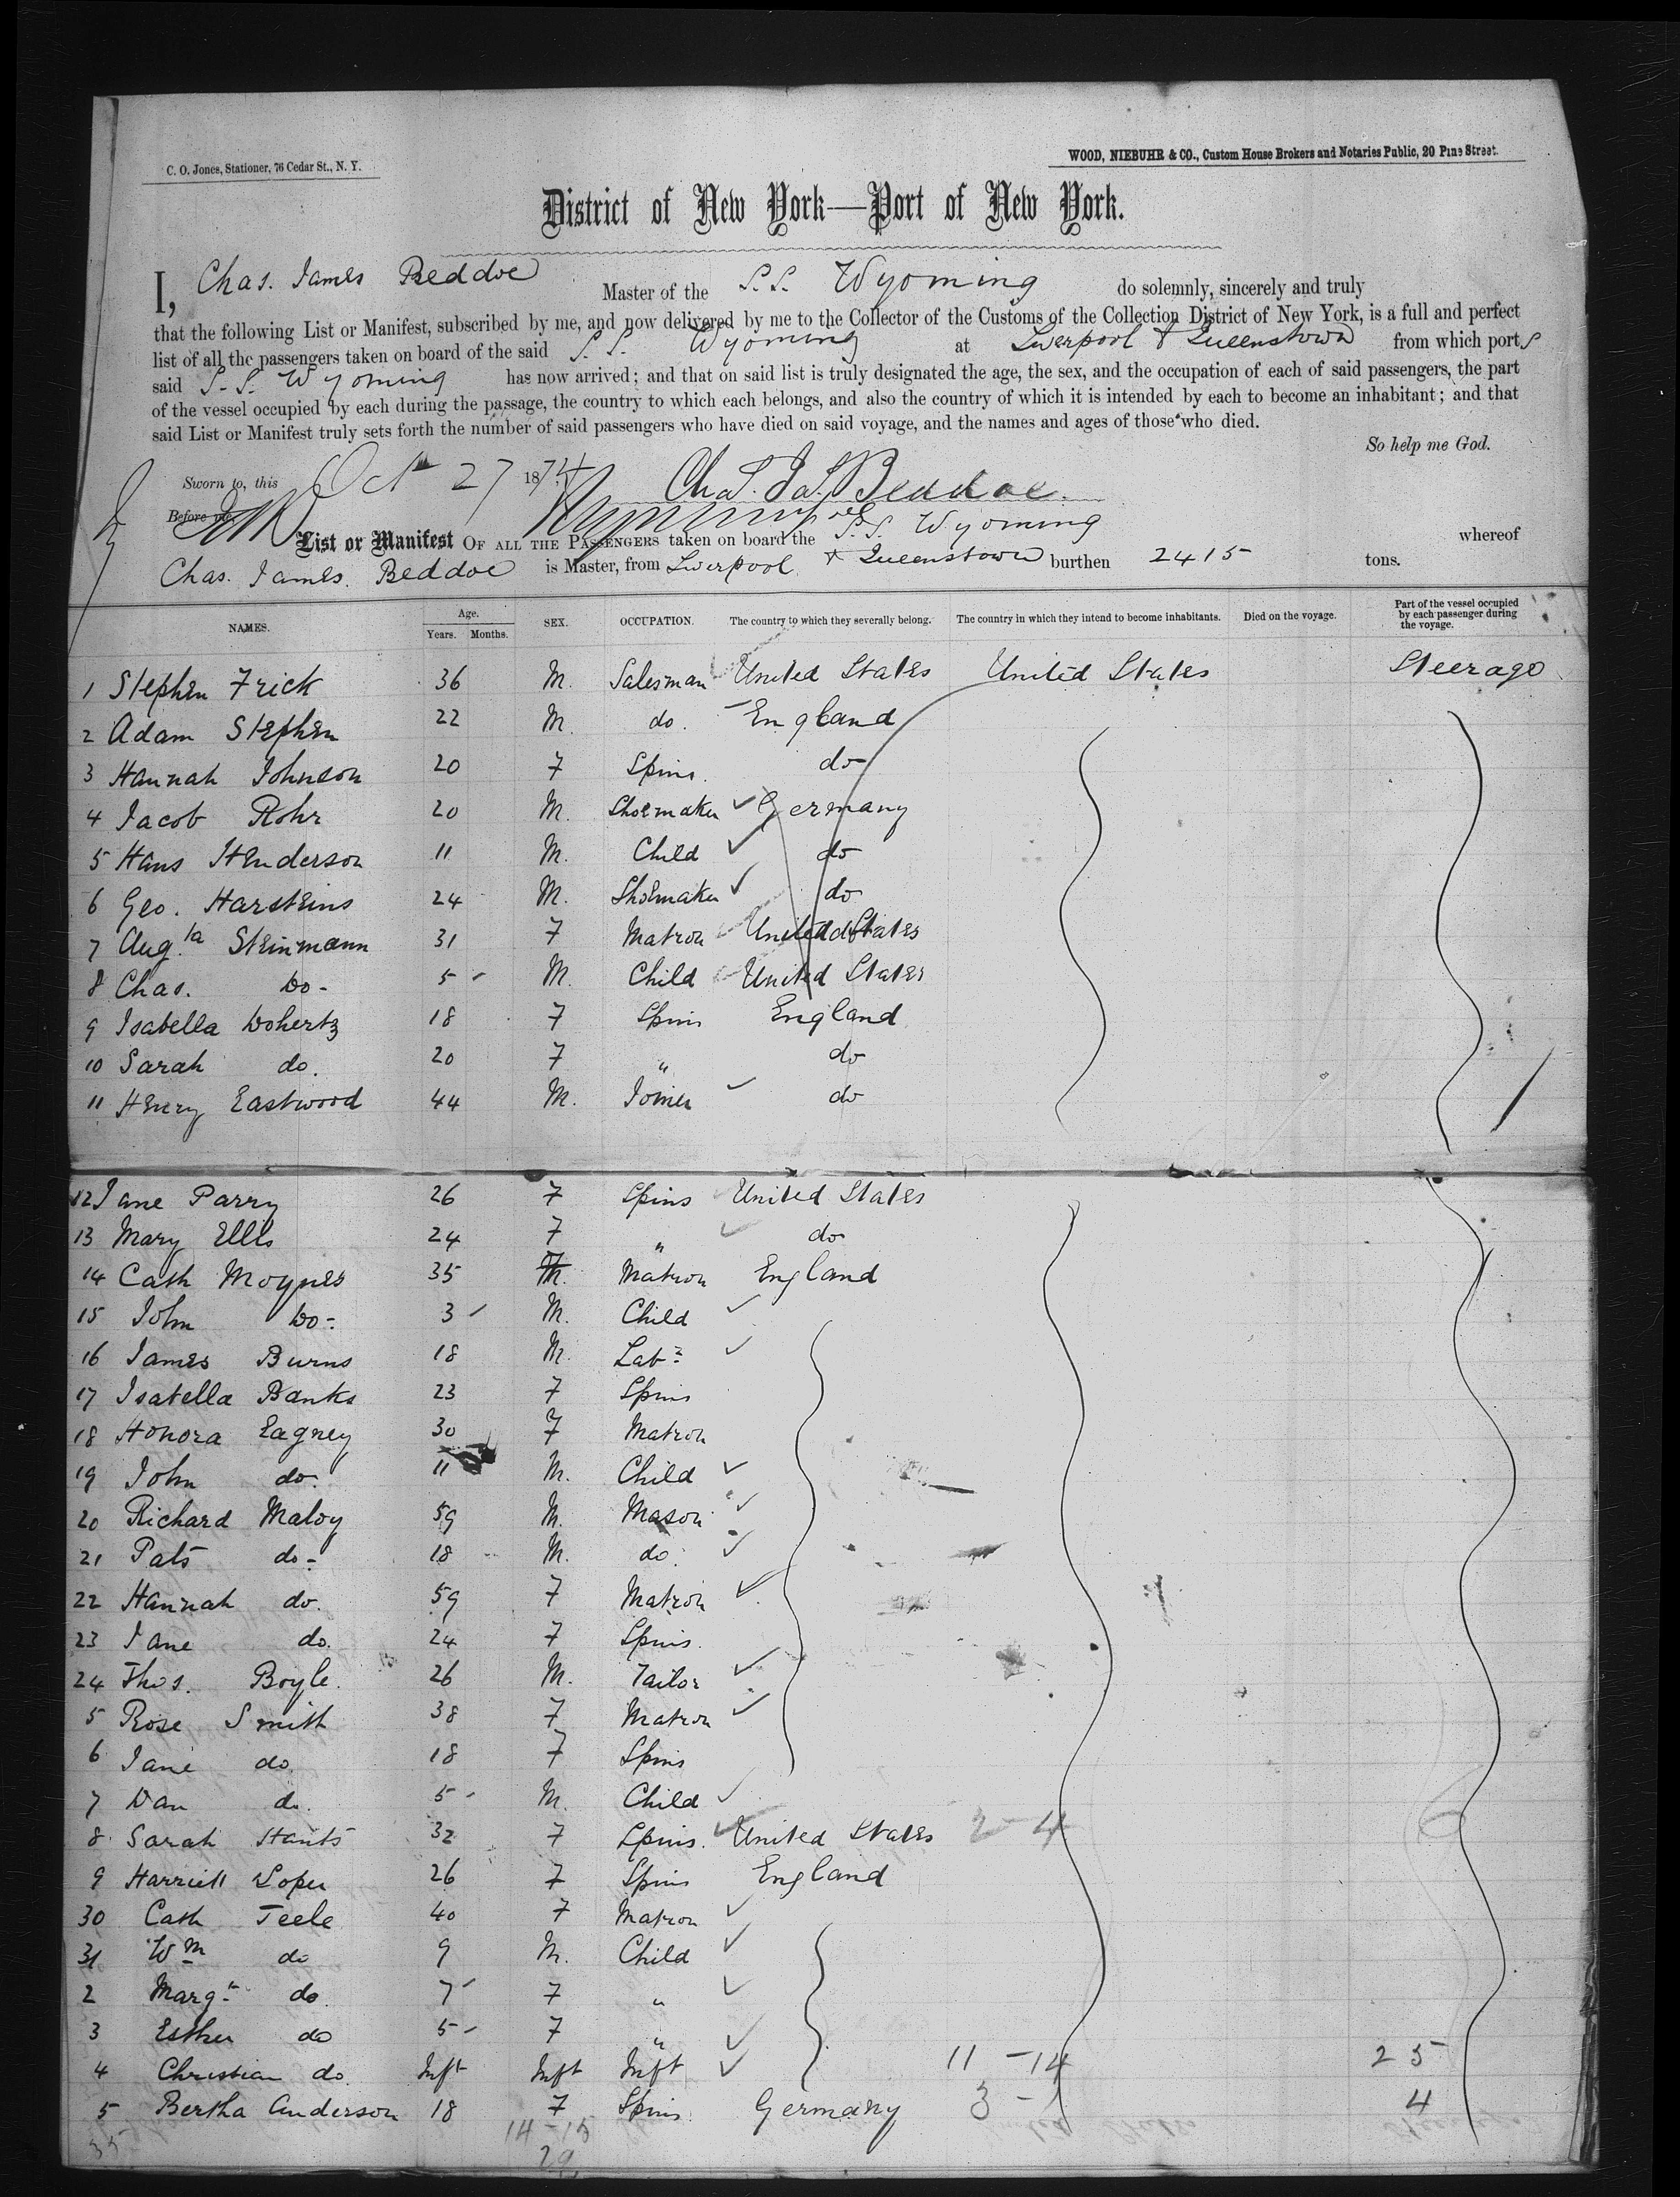 C. O. Jones, Stationer, 76 Cedar St., N. Y.
WOOD, NIEBUHR & CO., Custom House Brokers and Notaries Public, 20 Pine Street.
District of New York—Port of New York.
I, Chas. James Beddoe Master of the S.S. Wyoming do solemnly, sincerely and truly
that the following List or Manifest, subscribed by me, and now delivered by me to the Collector of the Customs of the Collection District of New York, is a full and perfect
list of all the passengers taken on board of the said S.S. Wyoming at Liverpool & Queenstown from which ports
said S.S. Wyoming has now arrived; and that on said list is truly designated the age, the sex, and the occupation of each of said passengers, the part
of the vessel occupied by each during the passage, the country to which each belongs, and also the country of which it is intended by each to become an inhabitant; and that
said List or Manifest truly sets forth the number of said passengers who have died on said voyage, and the names and ages of those who died.
So help me God.
Sworn to, this Oct 27 1874 Chas. Jas. Beddoe
Before me,
List or Manifest OF ALL THE PASSENGERS taken on board the S.S. Wyoming whereof
Chas. James. Beddoe is Master, from Liverpool & Queenstown burthen 2415 tons.
NAMES. Age. Years. Months. SEX. OCCUPATION. The country to which they severally belong. The country in which they intend to become inhabitants. Died on the voyage. Part of the vessel occupied by each passenger during the voyage.
1 Stephen Frick 36 M. Salesman United States United States Steerage
2 Adam Stephen 22 M. do. England
3 Hannah Johnson 20 F Spins. do
4 Jacob Rohr 20 M. Shoemaker Germany
5 Hans Henderson 11 M. Child do
6 Geo. Harsteins 24 M. Shoemaker do
7 Aug.ta Steinmann 31 F Matron United States
8 Chas. Do- 5 M. Child United States
9 Isabella Dohertz 18 F Spins England
10 Sarah do. 20 F " do
11 Henry Eastwood 44 M. Joiner do
12 Jane Parry 26 F Spins United States
13 Mary Ellis 24 F " do
14 Cath Moynes 35 F Matron England
15 John Do- 3 M. Child
16 James Burns 18 M. Labr
17 Isabella Banks 23 F Spins
18 Honora Eagney 30 F Matron
19 John do. 11 M. Child
20 Richard Maloy 59 M. Mason
21 Pat's do- 18 M. do.
22 Hannah do. 59 F Matron
23 Jane do. 24 F Spins.
24 Thos. Boyle. 26 M. Tailor
5 Rose Smith 38 F Matron
6 Jane do. 18 F Spins
7 Dan do. 5 M. Child
8 Sarah 32 F Spins. United States 2-4
9 Harriett Loper 26 F Spins England
30 Cath Teele 40 F Matron
31 Wm do 9 M. Child
2 Margt do. 7 F "
3 Esther do 5 F "
4 Christian do. Inft Inft Inft 11-14 25
5 Bertha Anderson 18 F Spins. Germany 3-1 4
35 14-15
29